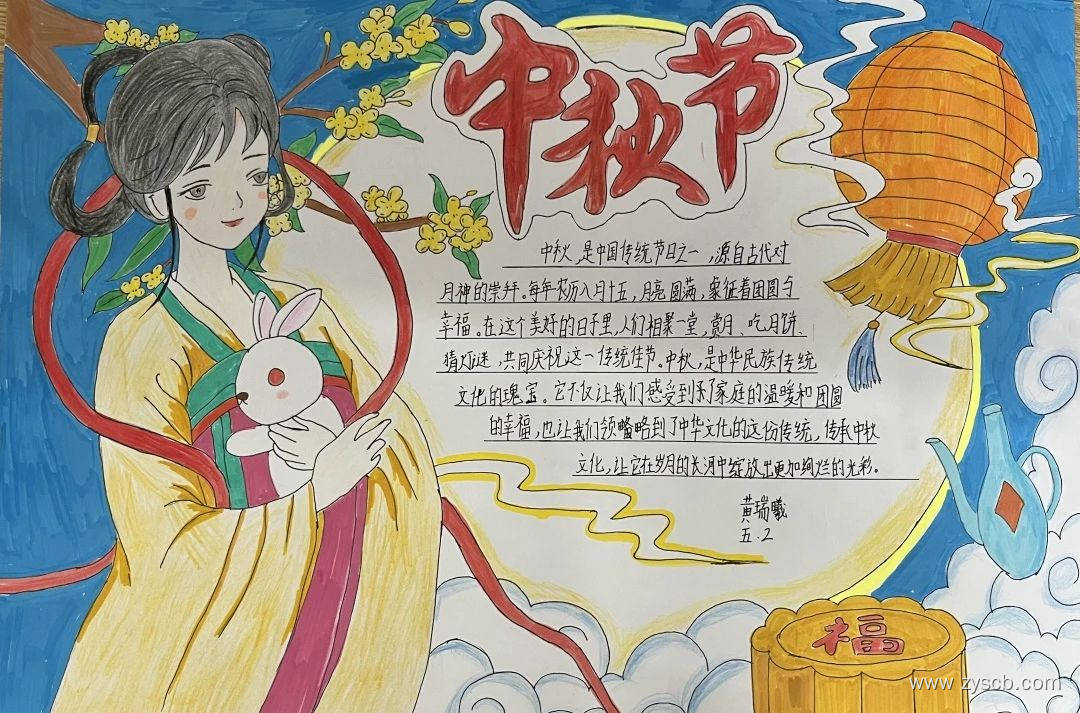 中秋节
中秋,是中国传统节日之一,源自古代对
月神的崇拜。每年农历八月十五,月亮圆满,象征着团圆与
幸福。在这个美好的日子里,人们相聚一堂,赏月、吃月饼、
猜灯谜,共同庆祝这一传统佳节。中秋,是中华民族传统
文化的瑰宝。它不仅让我们感受到了家庭的温暖和团圆
的幸福,也让我们领略到了中华文化的这份传统,传承中秋
文化,让它在岁月的长河中绽放出更加绚烂的光彩。
黄瑞曦
五.2
福
www.zyscb.com